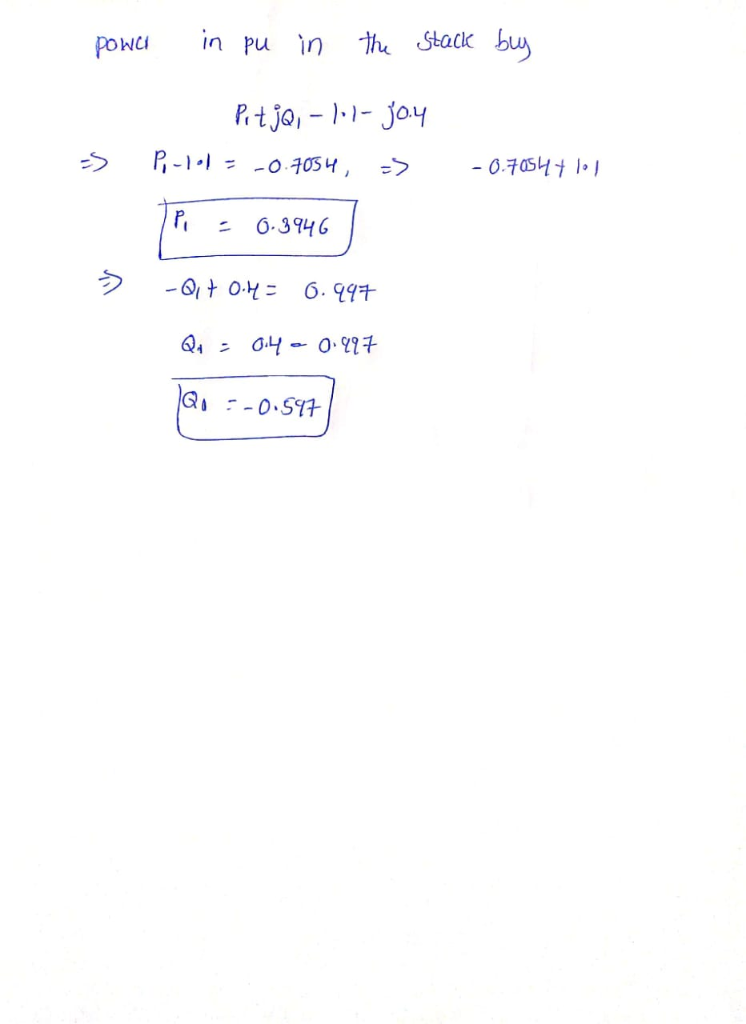 power in pu in the stack buy
P₁ + jQ₁ - 1.1 - j0.4
=> P₁ - 1.1 = -0.7054, => -0.7054 + 1.1
P₁ = 0.3946
=> -Q₁ + 0.4 = 0.997
Q₁ = 0.4 - 0.997
Q₁ = -0.597